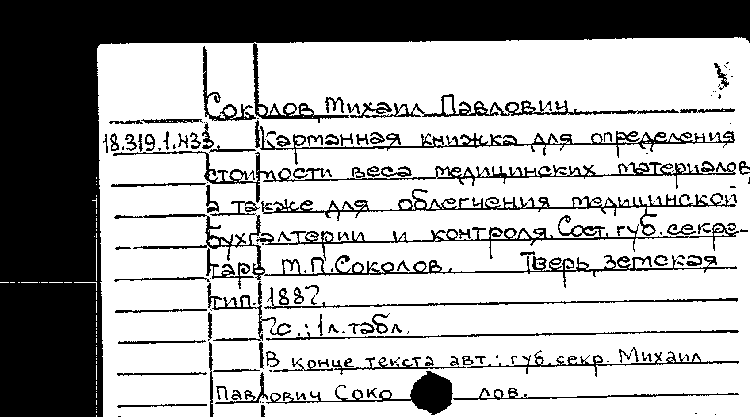 Соколов, Михаил Павлович.
18.319.1.433. Карманная книжка для определения
стоимости веса медицинских материалов,
а также для облегчения медицинской
бухгалтерии и контроля. Сост. губ. секре-
тарь М.П. Соколов. Тверь, земская
тип. 1887.
7с.; 1л. табл.
В конце текста авт.: губ. секр. Михаил
Павлович Соколов.